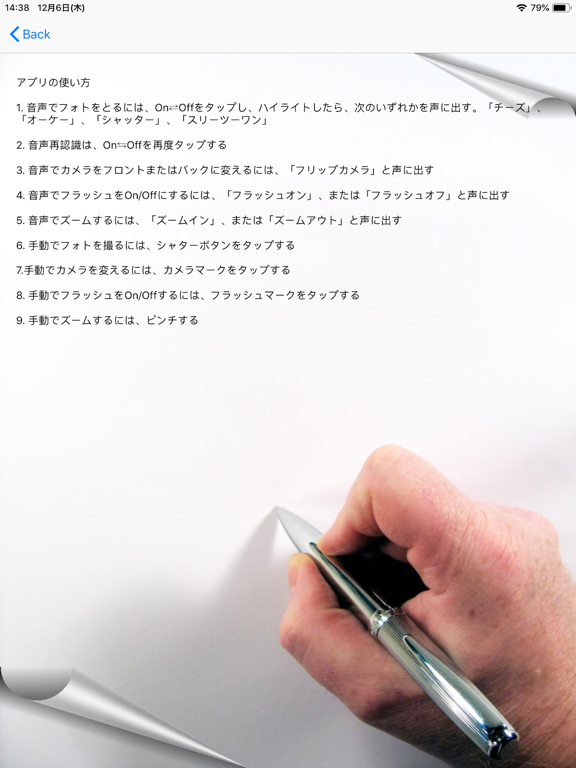 14:38 12月6日(木) 79%
Back
アプリの使い方
1. 音声でフォトをとるには、On⇄Offをタップし、ハイライトしたら、次のいずれかを声に出す。「チーズ」、
「オーケー」、「シャッター」、「スリーツーワン」
2. 音声再認識は、On⇆Offを再度タップする
3. 音声でカメラをフロントまたはバックに変えるには、「フリップカメラ」と声に出す
4. 音声でフラッシュをOn/Offにするには、「フラッシュオン」、または「フラッシュオフ」と声に出す
5. 音声でズームするには、「ズームイン」、または「ズームアウト」と声に出す
6. 手動でフォトを撮るには、シャターボタンをタップする
7.手動でカメラを変えるには、カメラマークをタップする
8. 手動でフラッシュをOn/Offするには、フラッシュマークをタップする
9. 手動でズームするには、ピンチする